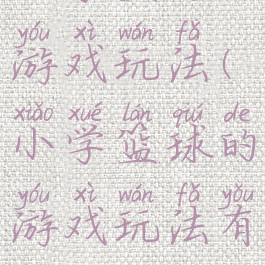 yóu xì wán fǎ
游戏玩法(
xiǎo xué lán qiú de
小学篮球的
yóu xì wán fǎ yǒu
游戏玩法有